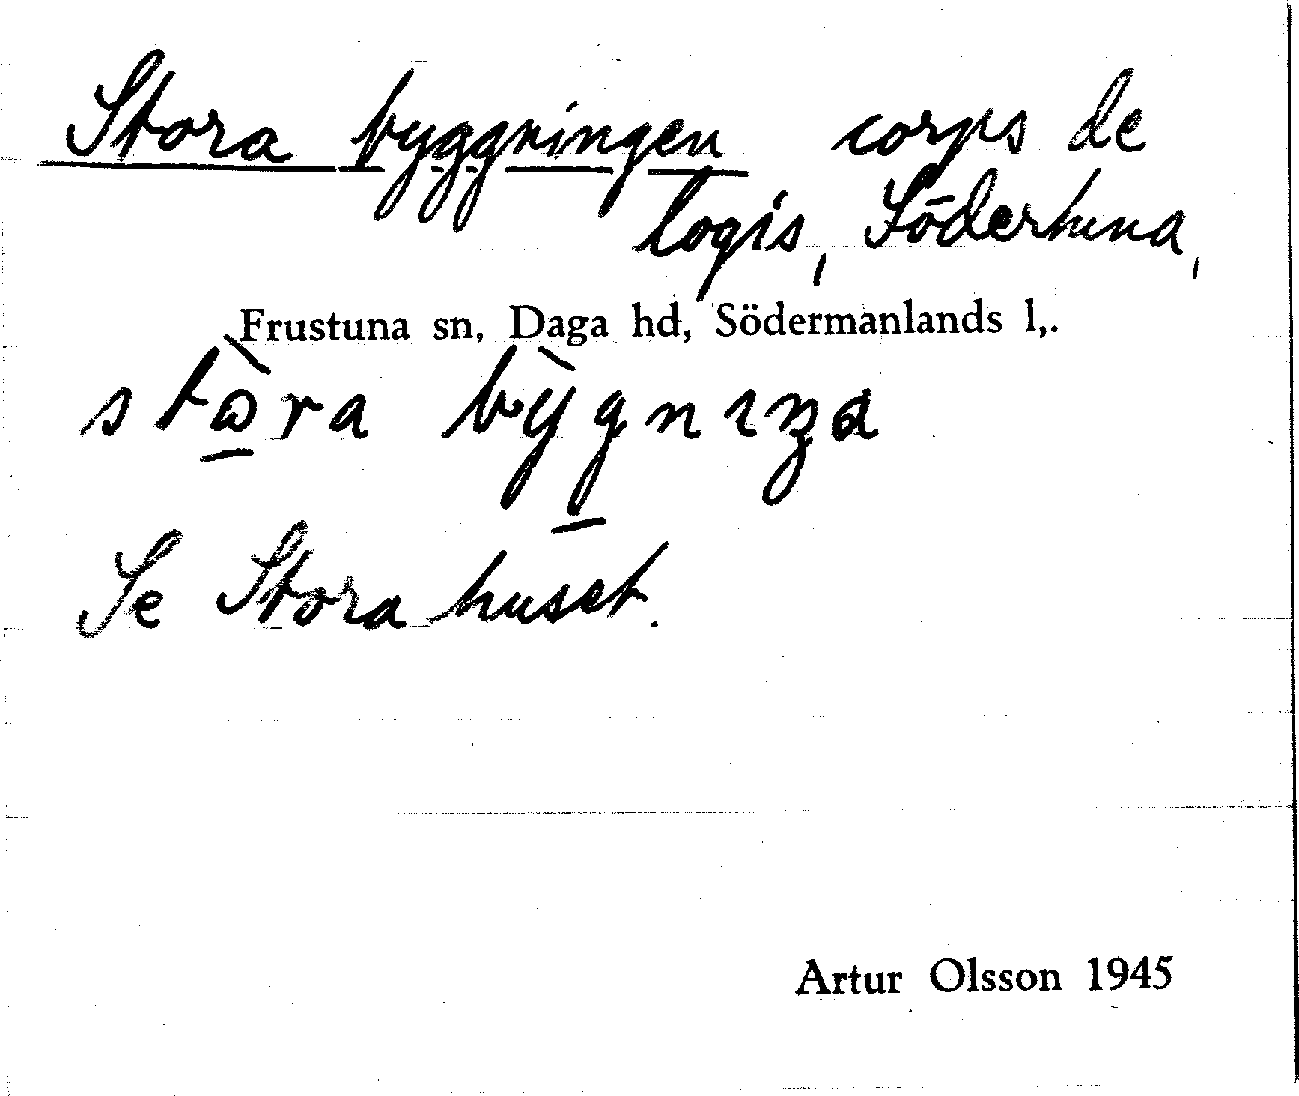 Stora byggningen corps de
logis, Södertuna,
Frustuna sn, Daga hd, Södermanlands l,.
stὼra bỳgnıŋa
Se Stora huset.
Artur Olsson 1945